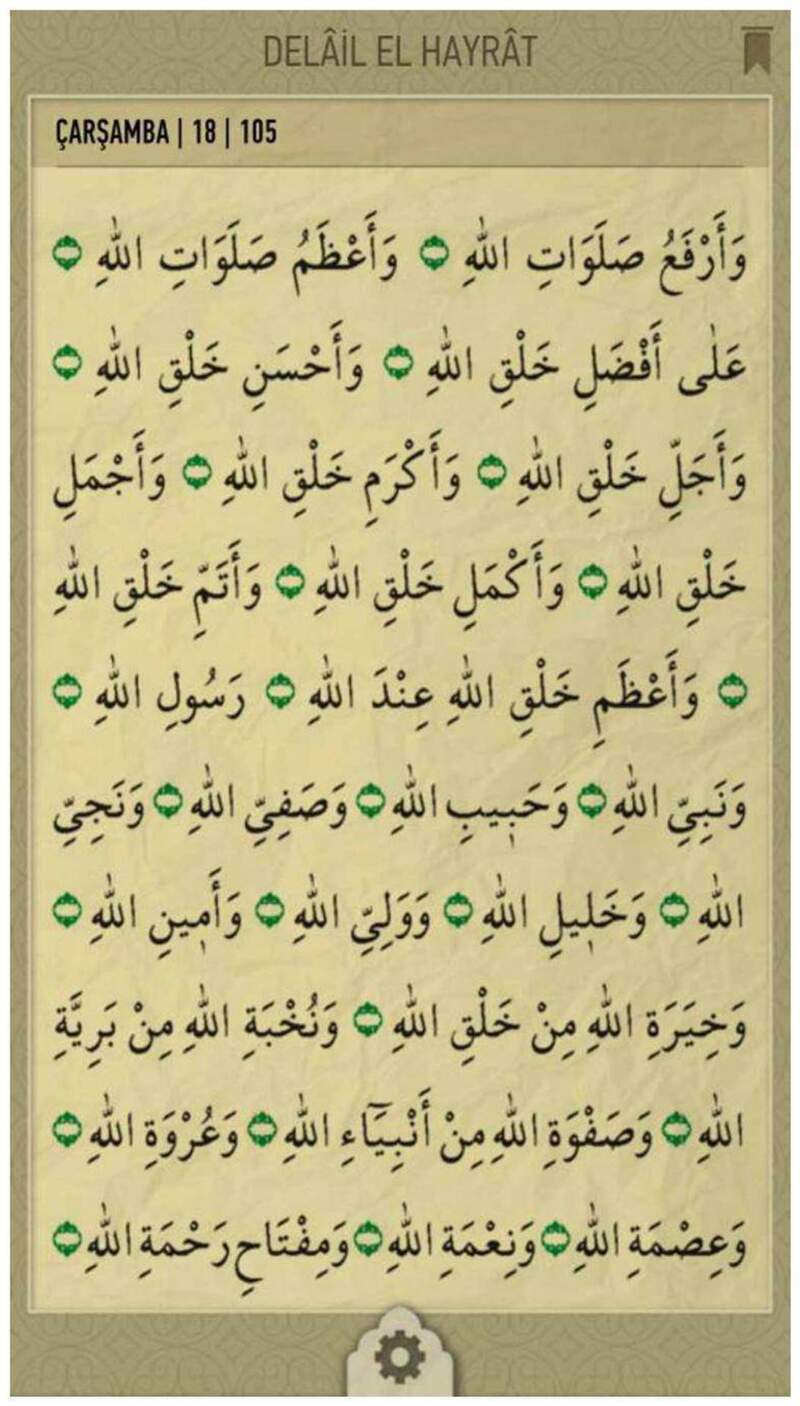 DELÂİL EL HAYRÂT
ÇARŞAMBA | 18 | 105
وَأَرْفَعُ صَلَوَاتِ اللّٰهِ ۝ وَأَعْظَمُ صَلَوَاتِ اللّٰهِ ۝
عَلٰى أَفْضَلِ خَلْقِ اللّٰهِ ۝ وَأَحْسَنِ خَلْقِ اللّٰهِ ۝
وَأَجَلِّ خَلْقِ اللّٰهِ ۝ وَأَكْرَمِ خَلْقِ اللّٰهِ ۝ وَأَجْمَلِ
خَلْقِ اللّٰهِ ۝ وَأَكْمَلِ خَلْقِ اللّٰهِ ۝ وَأَتَمِّ خَلْقِ اللّٰهِ
۝ وَأَعْظَمِ خَلْقِ اللّٰهِ عِنْدَ اللّٰهِ ۝ رَسُولِ اللّٰهِ ۝
وَنَبِيِّ اللّٰهِ ۝ وَحَبِيبِ اللّٰهِ ۝ وَصَفِيِّ اللّٰهِ ۝ وَنَجِيِّ
اللّٰهِ ۝ وَخَلِيلِ اللّٰهِ ۝ وَوَلِيِّ اللّٰهِ ۝ وَأَمِينِ اللّٰهِ ۝
وَخِيَرَةِ اللّٰهِ مِنْ خَلْقِ اللّٰهِ ۝ وَنُخْبَةِ اللّٰهِ مِنْ بَرِيَّةِ
اللّٰهِ ۝ وَصَفْوَةِ اللّٰهِ مِنْ أَنْبِيَٓاءِ اللّٰهِ ۝ وَعُرْوَةِ اللّٰهِ ۝
وَعِصْمَةِ اللّٰهِ ۝ وَنِعْمَةِ اللّٰهِ ۝ وَمِفْتَاحِ رَحْمَةِ اللّٰهِ ۝